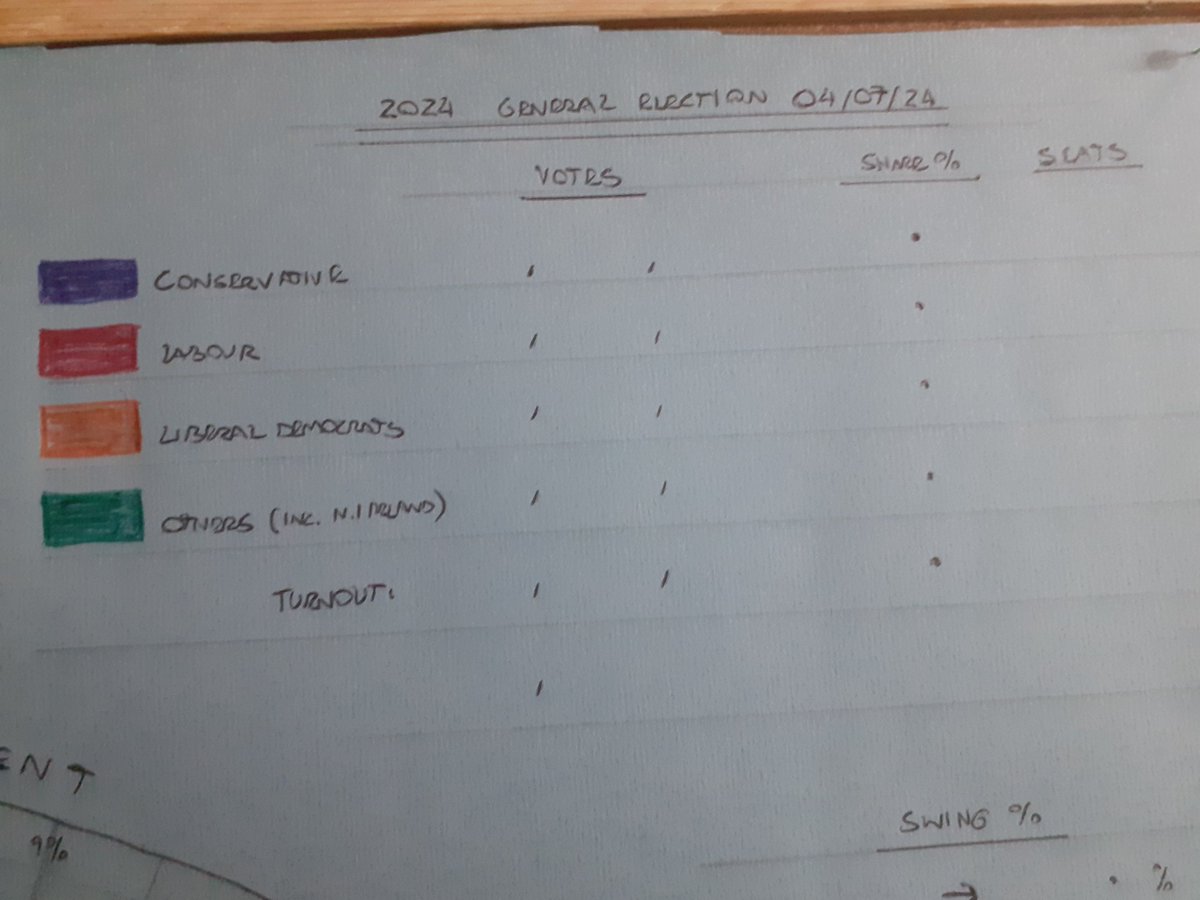 2024 GENERAL ELECTION 04/07/24
VOTES SHARE % SEATS
CONSERVATIVE , , .
LABOUR , , .
LIBERAL DEMOCRATS , , .
OTHERS (INC. N.IRELAND) , , .
TURNOUT: , , .
,
ENT
9%
SWING %
→ . %